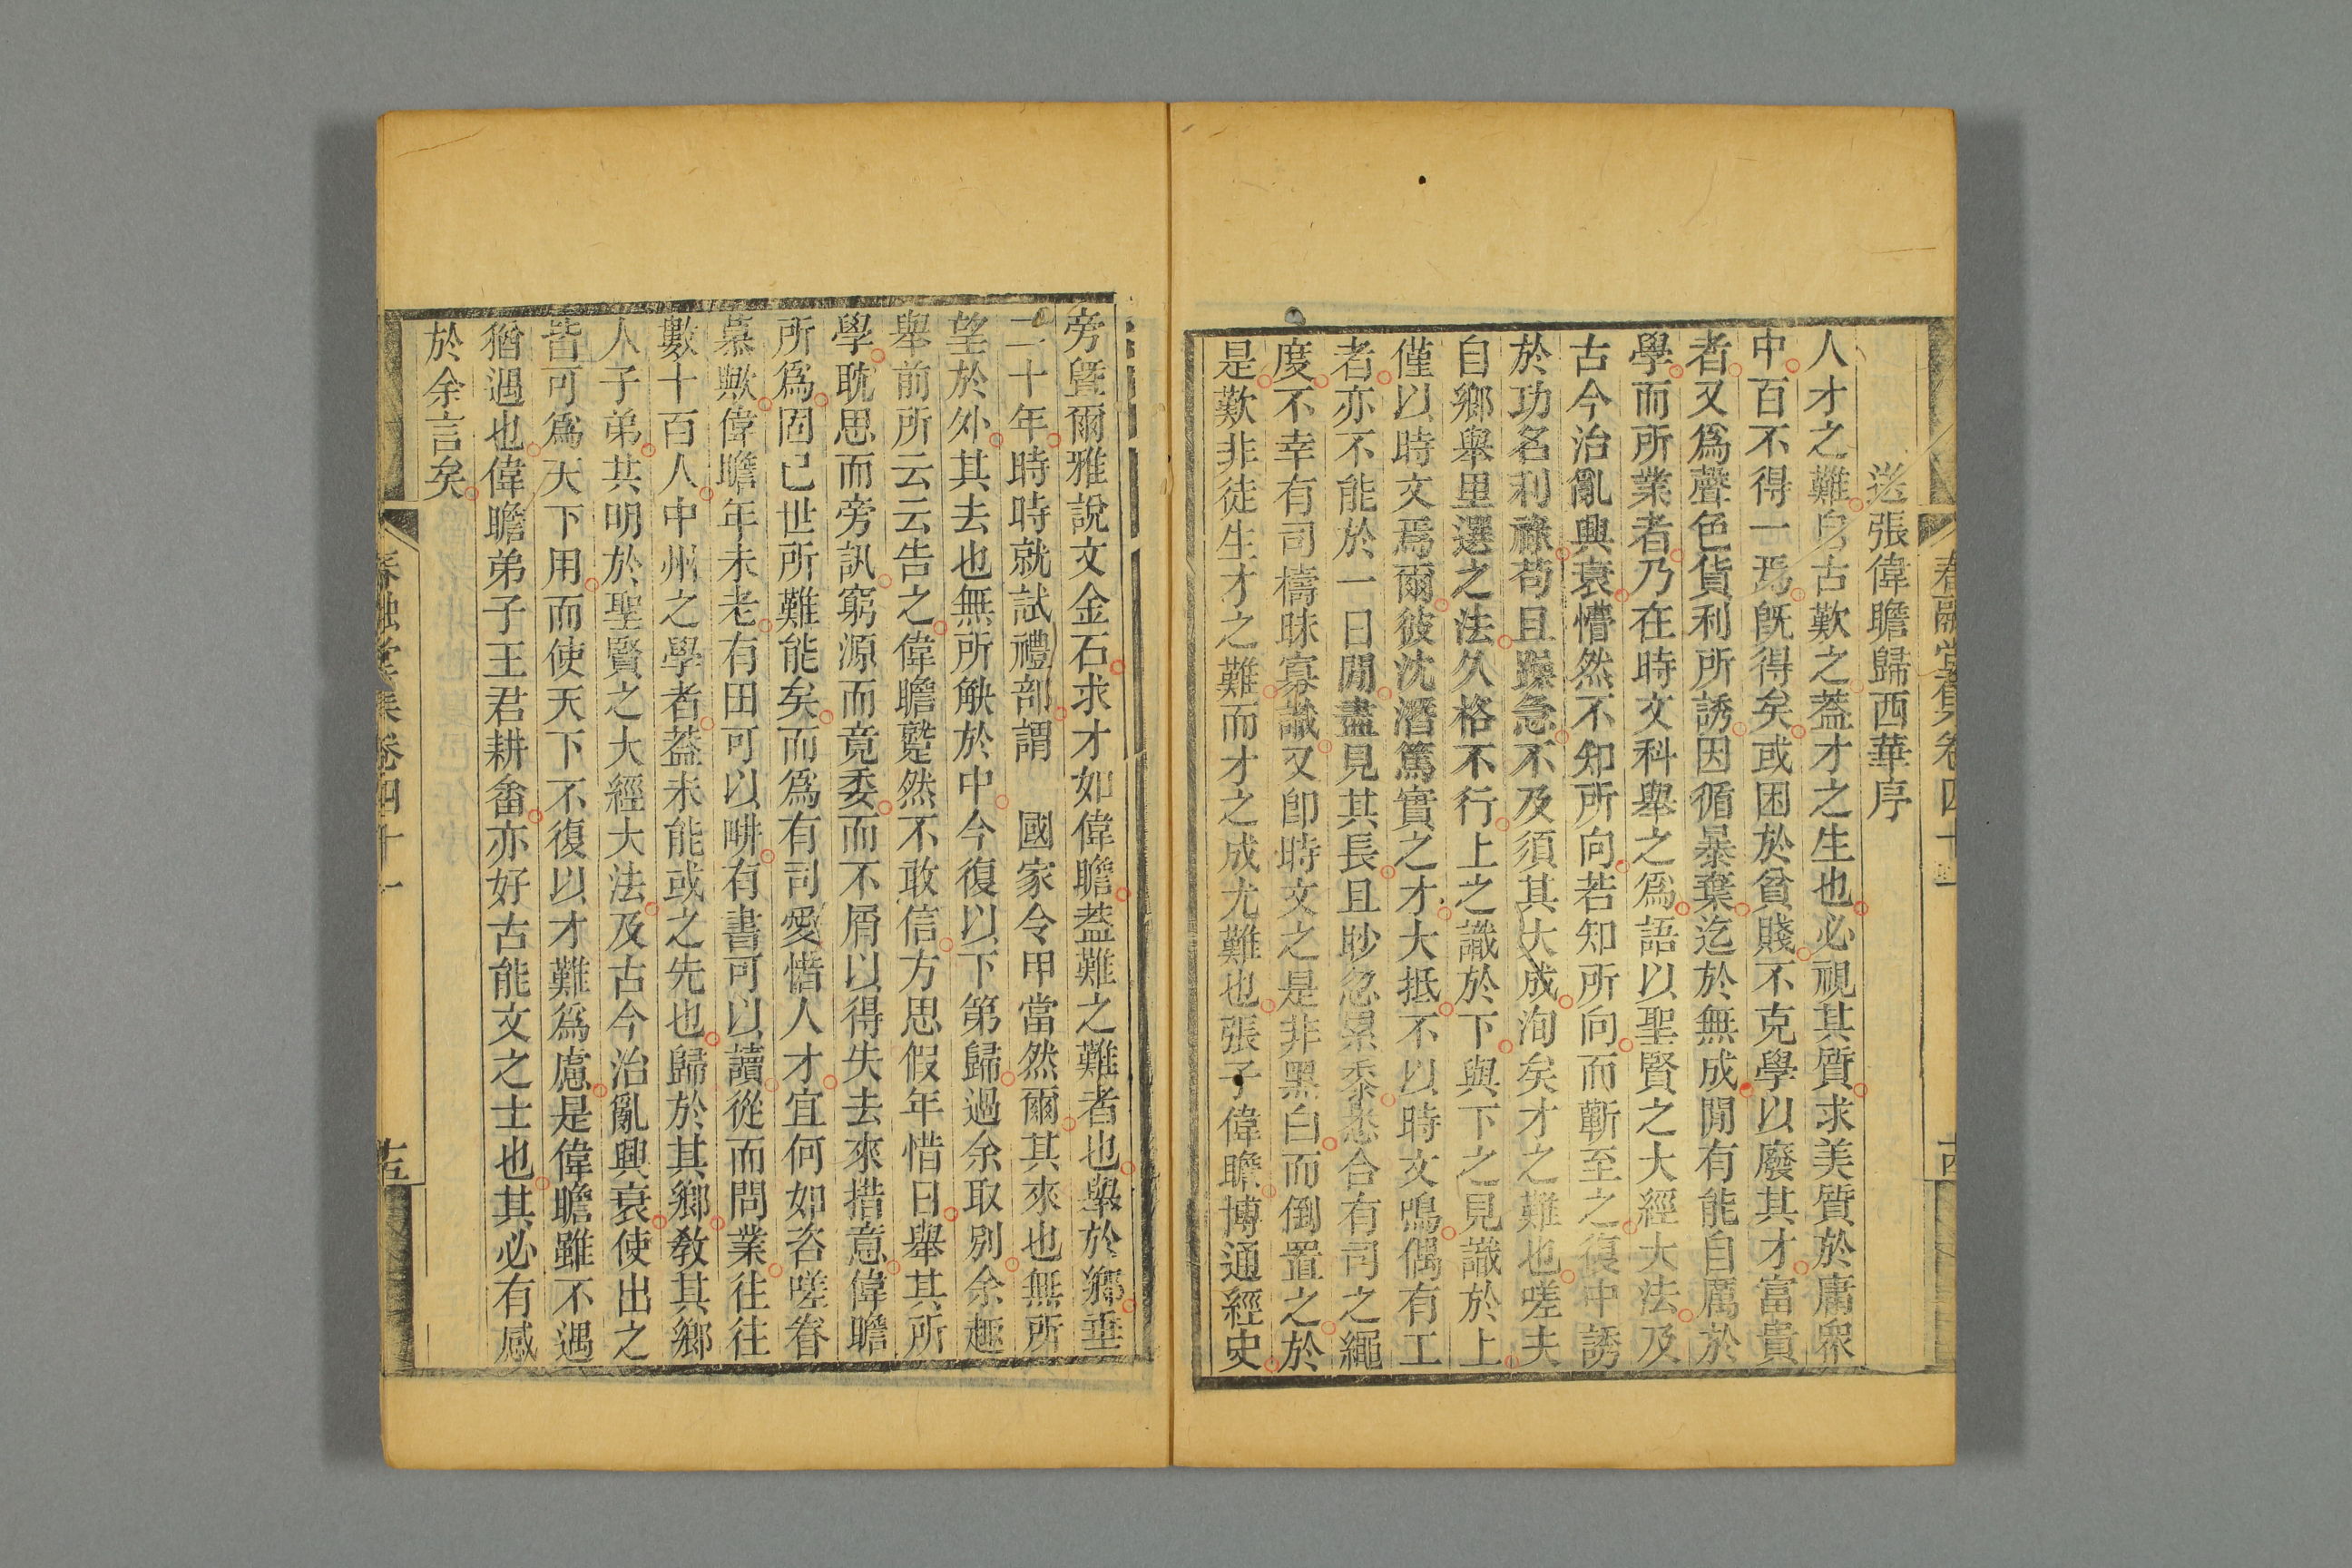 春融堂集卷四十一
送張偉瞻歸西華序
人才之難自古歎之蓋才之生也必視其質求美質於庸眾
中百不得一焉旣得矣或困於貧賤不克學以廢其才富貴
者又爲聲色貨利所誘因循暴棄迄於無成閒有能自厲於
學而所業者乃在時文科舉之爲語以聖賢之大經大法及
古今治亂興衰懵然不知所向若知所向而蘄至之復中誘
於功名利祿苟且躁急不及須其大成洵矣才之難也嗟夫
自鄉舉里選之法久格不行上之識於下與下之見識於上
僅以時文焉爾彼沈潛篤實之才大抵不以時文鳴偶有工
者亦不能於一日閒盡見其長且眇忽累黍悉合有司之繩
度不幸有司檮昧寡識又卽時文之是非黑白而倒置之於
是歎非徒生才之難而才之成尤難也張子偉瞻博通經史
旁曁爾雅說文金石求才如偉瞻蓋難之難者也舉於鄉垂
二十年時時就試禮部謂 國家令甲當然爾其來也無所
望於外其去也無所觖於中今復以下第歸過余取別余趣
舉前所云云告之偉瞻蹵然不敢信方思假年惜日舉其所
學耽思而旁訊窮源而竟委而不屑以得失去來措意偉瞻
所爲固已世所難能矣而爲有司愛惜人才宜何如咨嗟眷
慕歟偉瞻年未老有田可以畊有書可以讀從而問業往往
數十百人中州之學者蓋未能或之先也歸於其鄉敎其鄉
人子弟共明於聖賢之大經大法及古今治亂興衰使出之
皆可爲天下用而使天下不復以才難爲慮是偉瞻雖不遇
猶遇也偉瞻弟子王君耕畬亦好古能文之士也其必有感
於余言矣
春融堂集卷四十一
十五